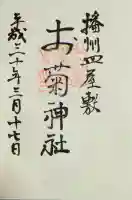 播州皿屋敷
お菊神社
平成二十年三月十七日